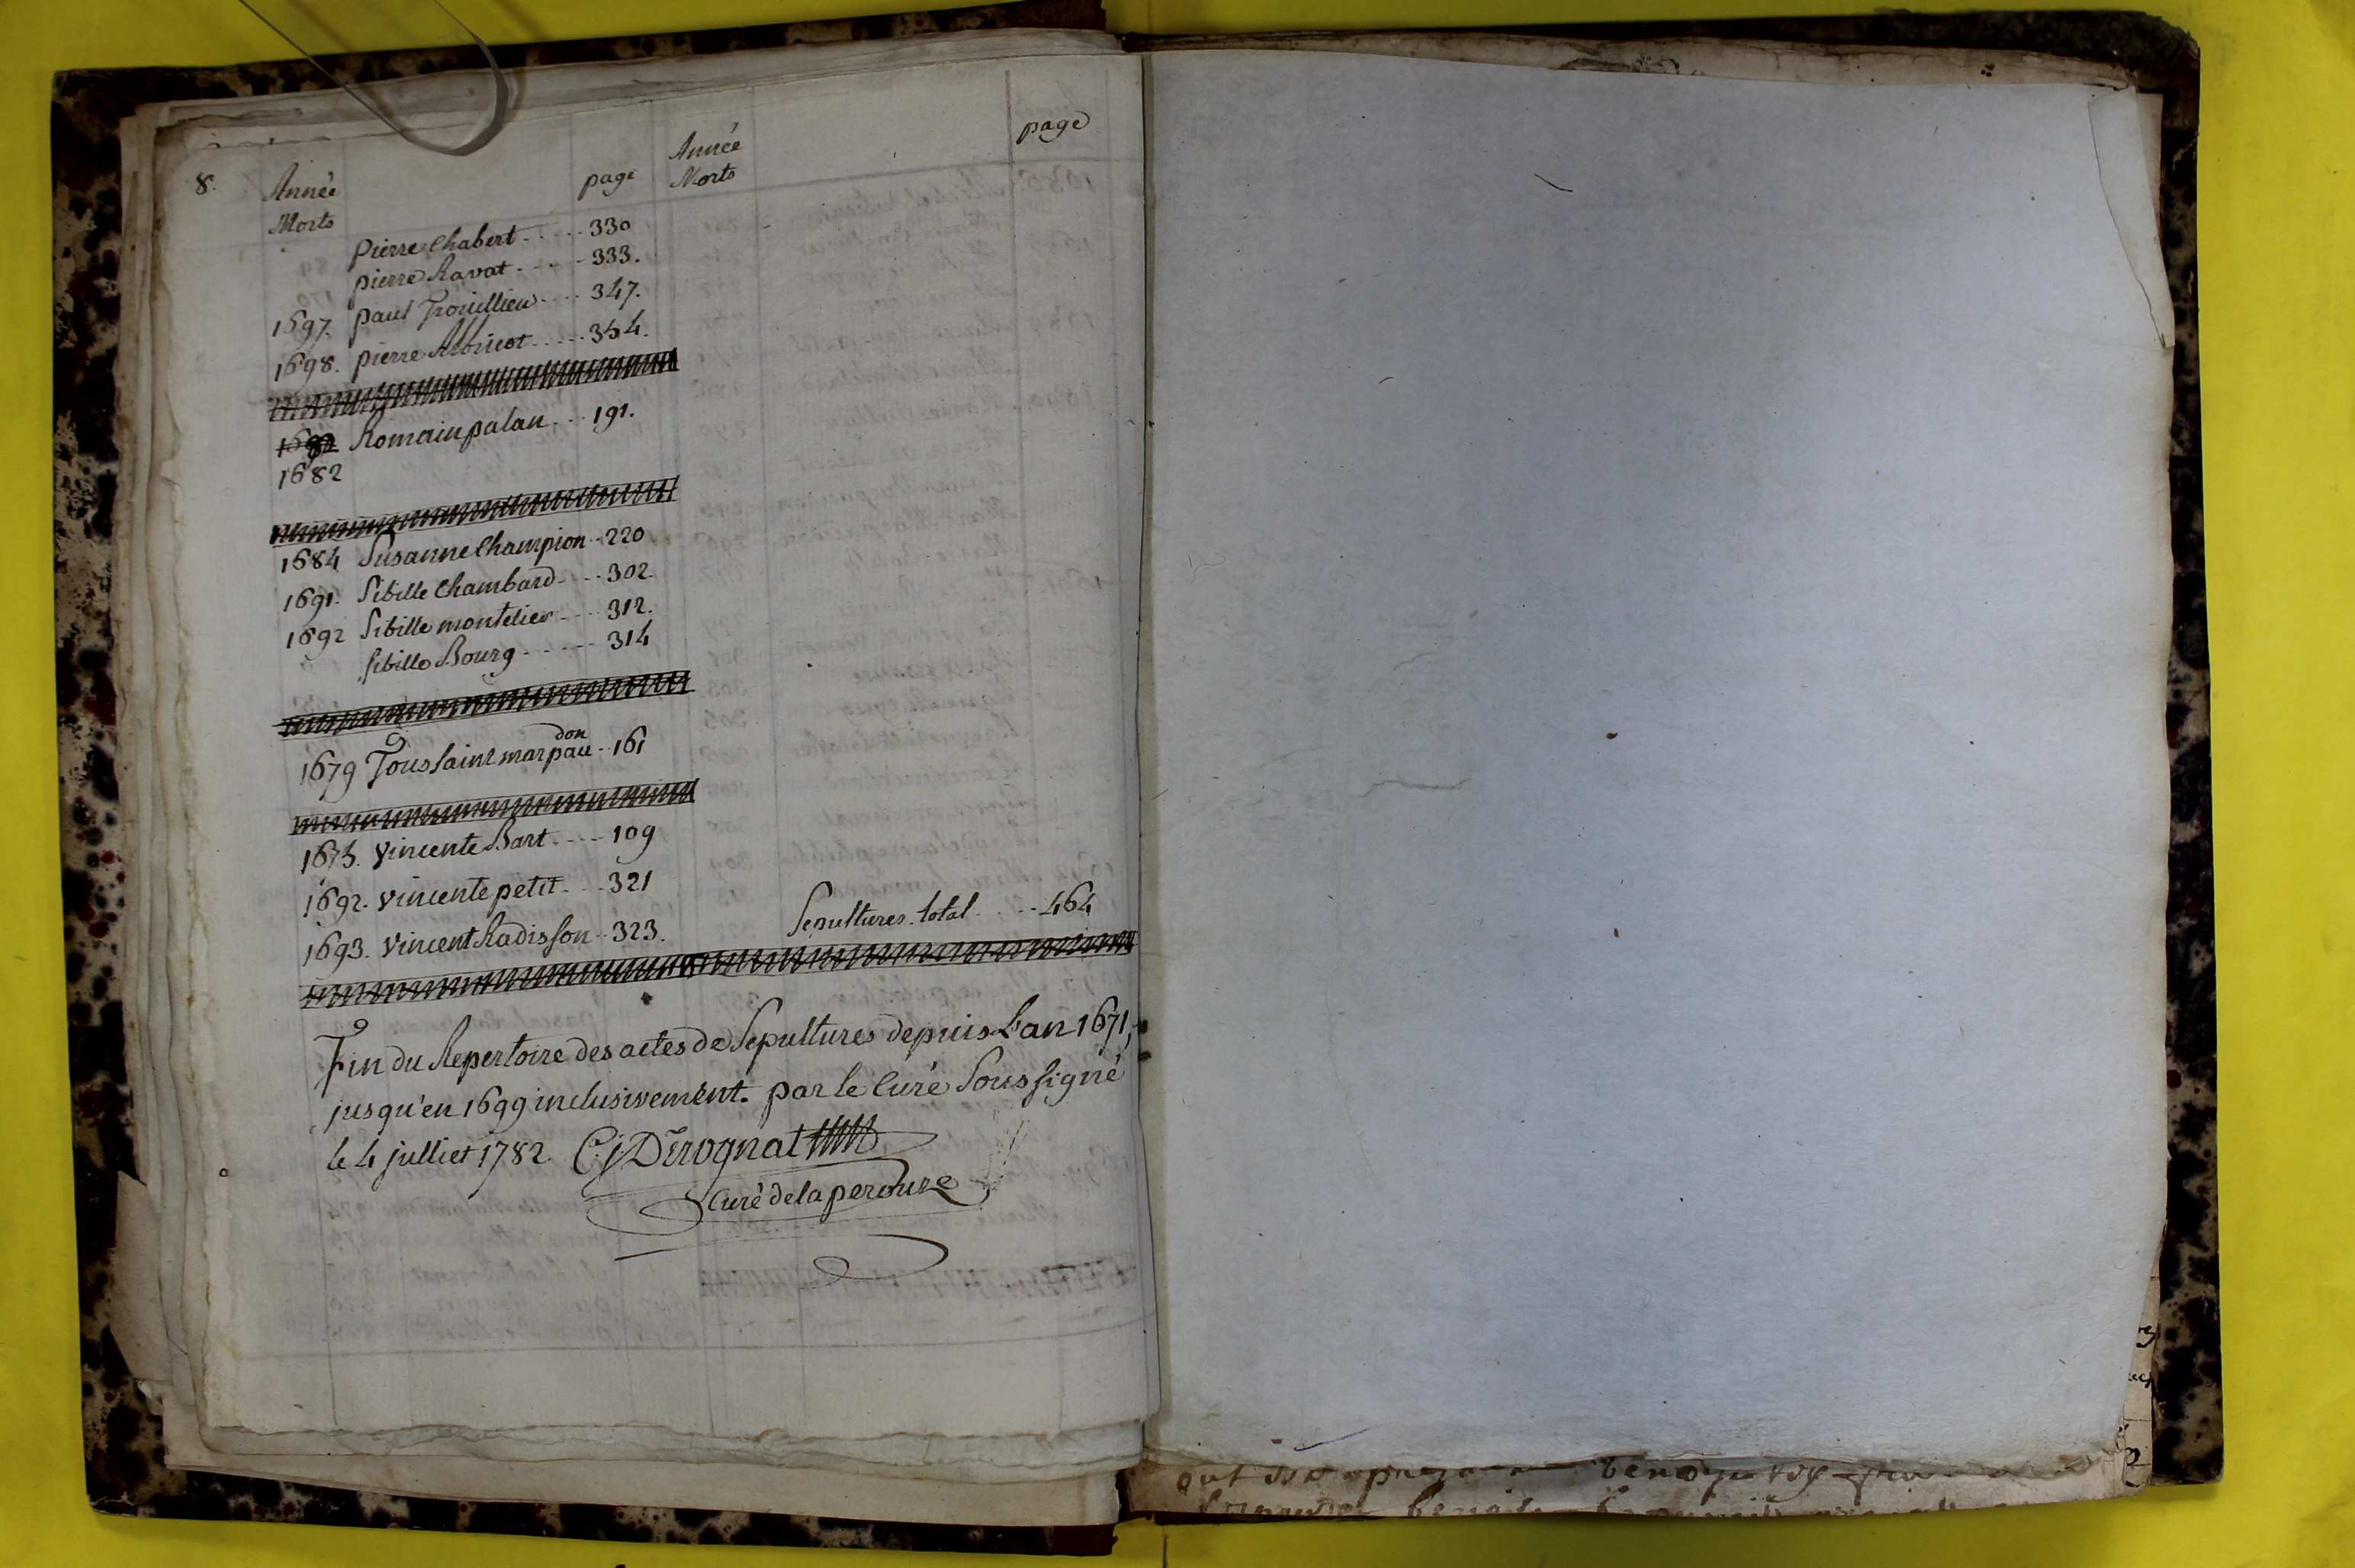 8.
Année
Morts
page
Année
Morts
page
Pierre Chabert 330
pierre Ravat 333.
1697. paul Trouillieu 347.
1698. pierre Abricot 354.
1692 Romain palan 191.
1682
1684 Susanne Champion 220
1691. Sibille Chambard 302.
1692 Sibille montelier 312.
Sibille Bourg 314
don
1679 Toussaint marpau 161
1675. Vincente Bart 109
1692. Vincente petit 321
1693. Vincent Radisson 323.
Sepultures. total 464
Fin du Repertoire des actes de Sepultures depuis L'an 1671,
jusqu'en 1699 inclusivement. par le Curé Soussigné
le 4 julliet 1782. C. j Derognat
Curé de la perouse